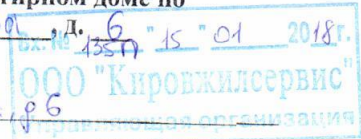 тирном доме по
д. 6
Вх. № 135П "15" 01 2018г.
ООО "Кировжилсервис"
, 96
Управляющая организация